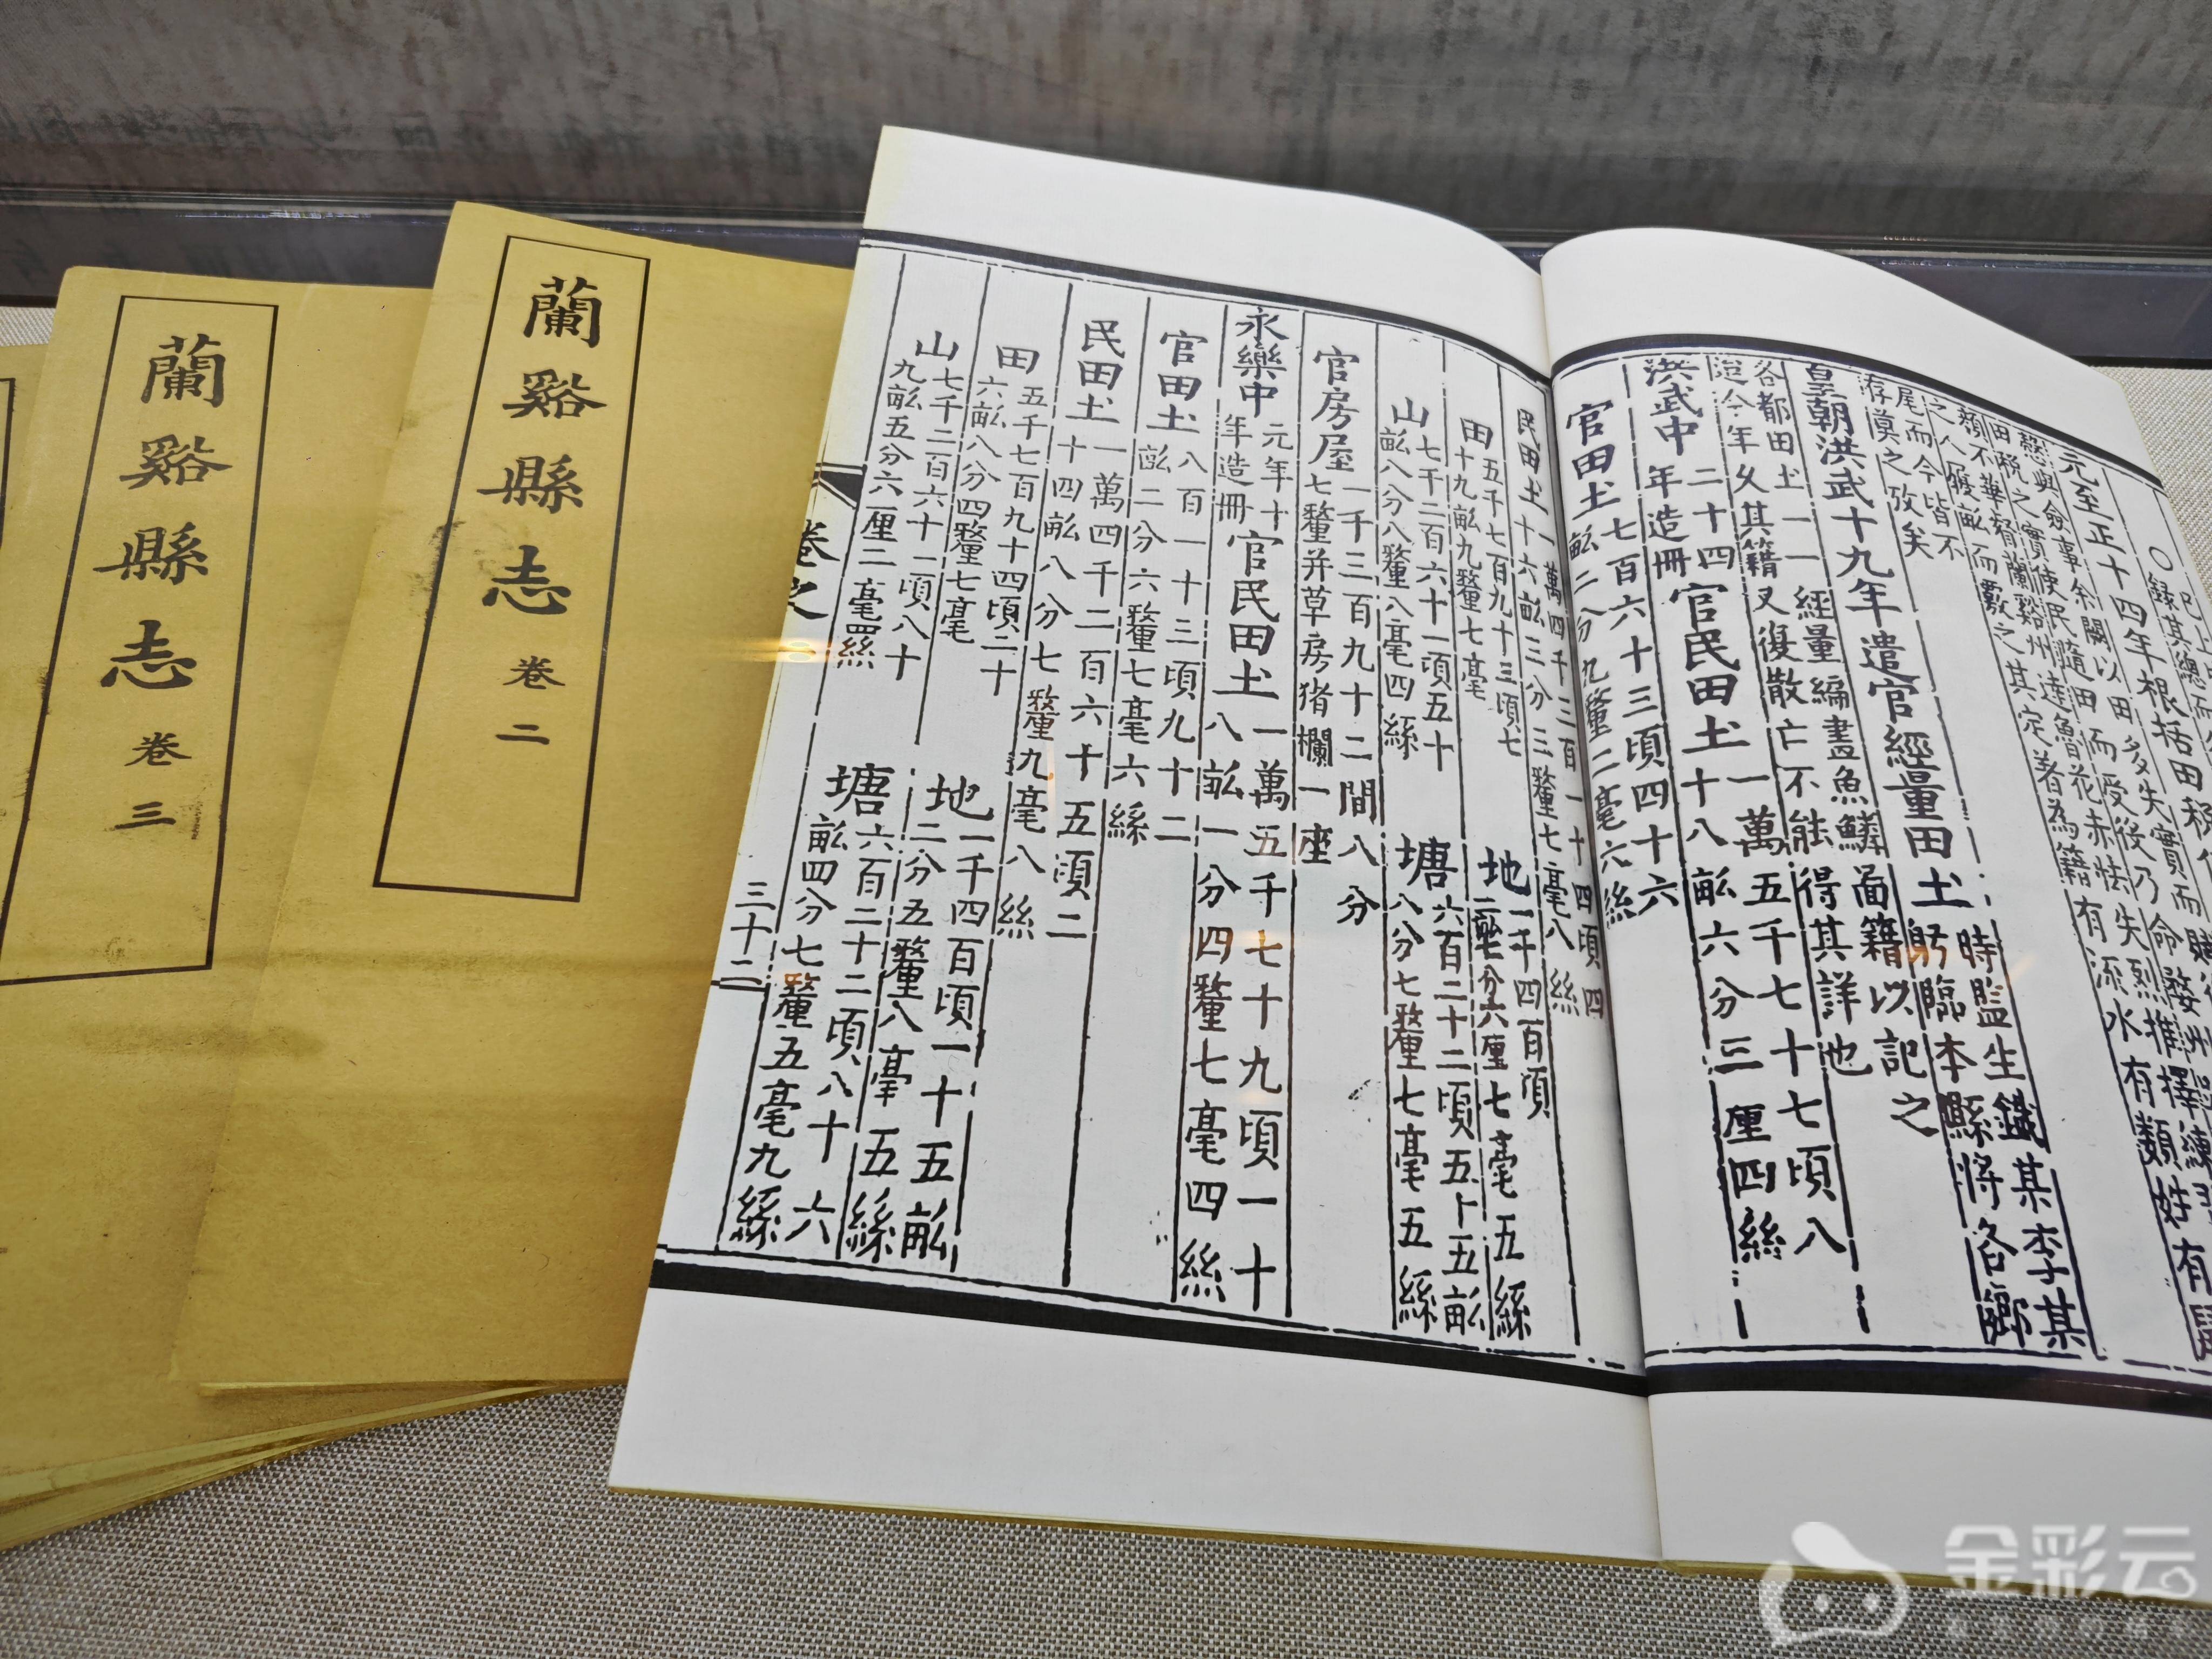 元至正十四年根括田
僉事余闕以田多失實而
田稅之實使民隨田而受役乃命婺州
蘭谿州達魯花赤怯失烈推擇
之人履畝而覈之其定著為籍有流水有類姓有
尾而今皆不
存莫之攷矣
皇朝洪武十九年遣官經量田土
時監生鐵某李某
躬臨本縣將各鄉
各都田土一一經量編畫魚鱗畐籍以記之
迨今年久其籍又復散亡不能得其詳也
洪武中
二十四
年造冊
官民田土
一萬五千七十七頃八
十八畝六分三厘四絲
官田土
七百六十三頃四十六
畝二分九釐二毫六絲
民田土
一萬四千三百一十四頃四
十六畝三分三釐七毫八絲
田
五千七百九十三頃七
十九畝九釐七毫
地
一千四百頃
七分六厘七毫五絲
山
七千二百六十一頃五十
畝八分八釐八毫四絲
塘
六百二十二頃五十五畝
八分七釐七毫五絲
官房屋
一千三百九十二間八分
七釐并草房猪欄一座
永樂中
元年十
年造冊
官民田土
一萬五千七十九頃一十
八畝一分四釐七毫四絲
官田土
八百一十三頃九十二
畝二分六釐七毫六絲
民田土
一萬四千二百六十五頃二
十四畝八分七釐九毫八絲
田
五千七百九十四頃二十
六畝八分四釐七毫
地
一千四百頃一十五畝
二分五釐八毫五絲
山
七千二百六十一頃八十
九畝五分六厘二毫四絲
塘
六百二十二頃八十六
畝四分七釐五毫九絲
卷之
三十二
蘭谿縣志 卷二
蘭谿縣志 卷三
金彩云